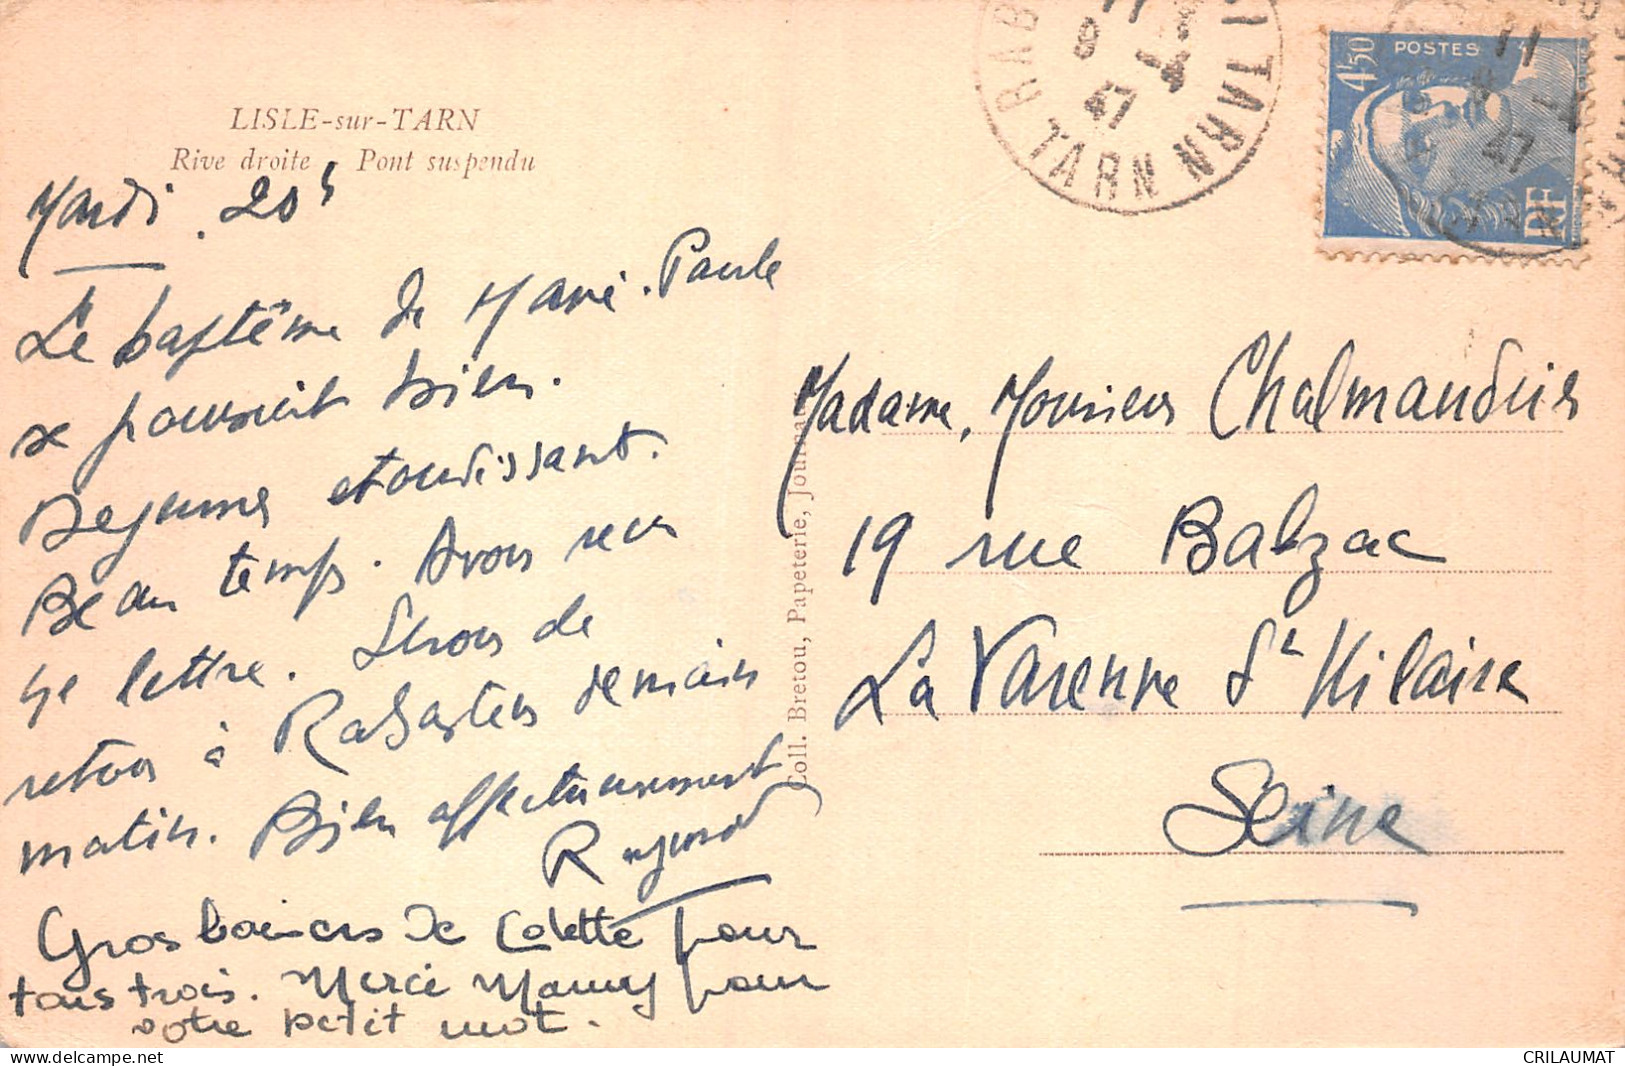 LISLE-sur-TARN
Rive droite - Pont suspendu
Mardi. 20h
Le baptême de Marie-Paule
se poursuit bien.
Dejeuner etourdissant.
Beau temps. Avons recu
ta lettre. Serons de
retour à Rabastens demain
matin. Bien affectueusement
Raymond
Gros baisers de Colette pour
tous trois. Merci Mamy pour
votre petit mot.
Coll. Bretou, Papeterie, Journaux
TARN
TARN
47
4f50
POSTES
RF
11
47
Madame, Monsieur Chalmandrier
19 rue Balzac
La Varenne St Hilaire
Seine
CRILAUMAT